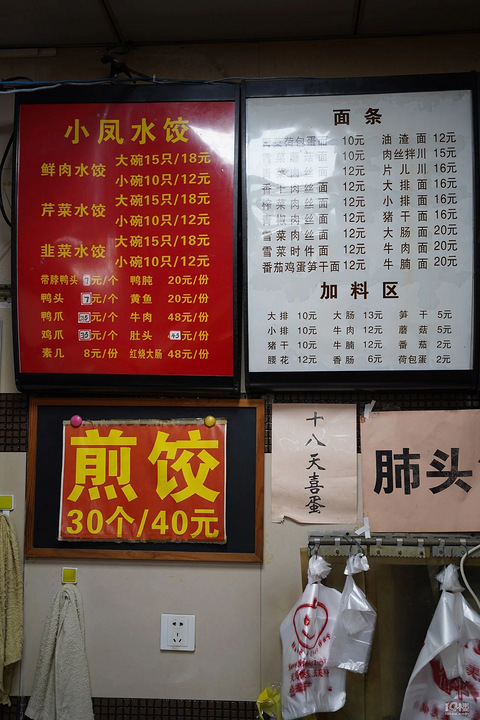 小凤水饺
鲜肉水饺 大碗15只/18元
小碗10只/12元
芹菜水饺 大碗15只/18元
小碗10只/12元
韭菜水饺 大碗15只/18元
小碗10只/12元
带脖鸭头 7元/个 鸭肫 20元/份
鸭头 7元/个 黄鱼 20元/份
鸭爪 元/个 牛肉 48元/份
鸡爪 元/个 肚头 45元/份
素几 8元/份 红烧大肠 48元/份
面条
荷包蛋面 10元 油渣面 12元
10元 肉丝拌川 15元
11元 片儿川 16元
肉丝面 12元 大排面 16元
榨菜肉丝面 12元 小排面 16元
椒肉丝面 12元 猪干面 16元
雪菜肉丝面 12元 大肠面 20元
雪菜时件面 12元 牛肉面 20元
番茄鸡蛋笋干面 12元 牛腩面 20元
加料区
大排 10元 大肠 13元 笋干 5元
小排 10元 牛肉 12元 蘑菇 5元
猪干 10元 牛腩 12元 番茄 2元
腰花 12元 香肠 6元 荷包蛋 2元
煎饺
30个/40元
十八天喜蛋
肺头